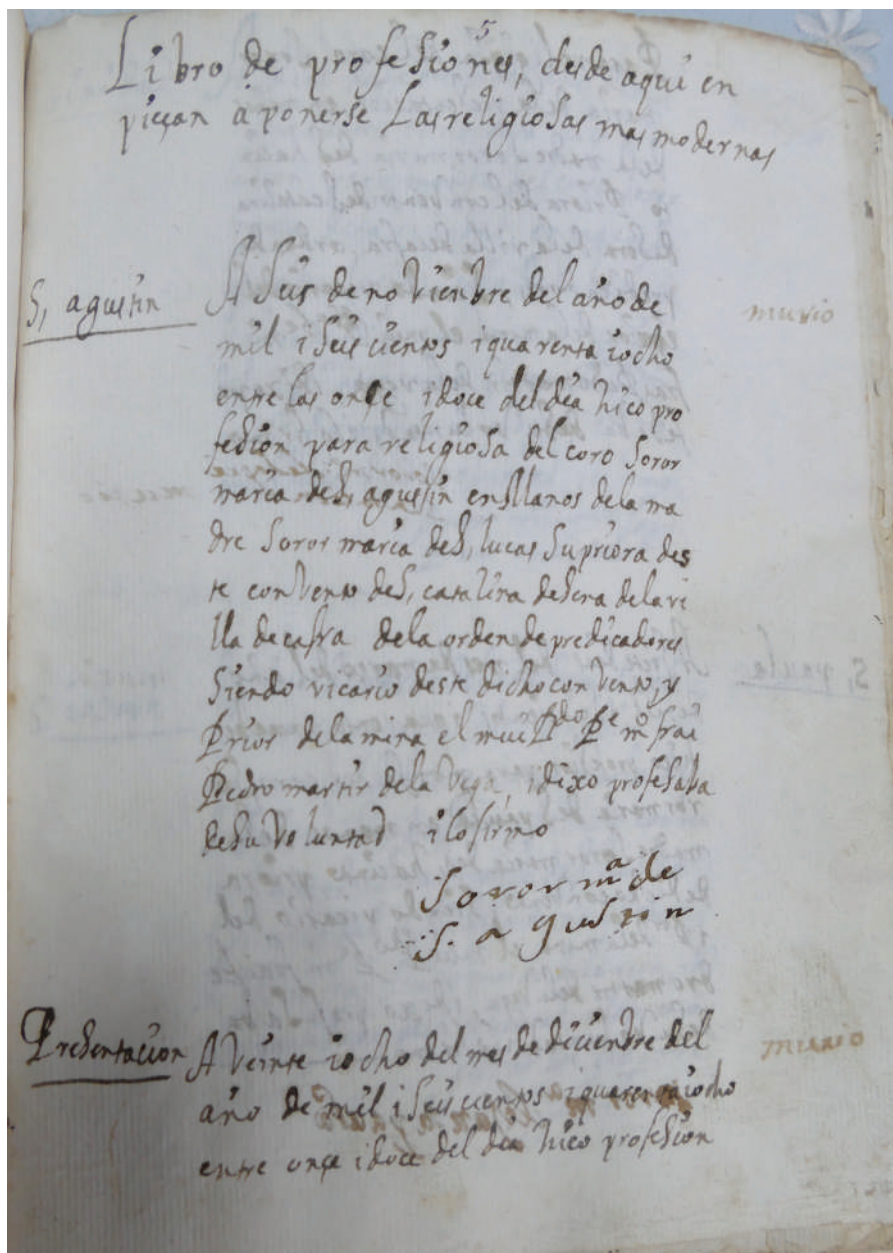 5
Libro de profesiones, desde aqui en
pieçan a ponerse Las religiosas mas modernas
S, agustin
A Seis de noVienbre del año de
murio
mil i Seis cientos i quarenta iocho
entre las onçe idoce del dia hiço pro
fesion para religiosa del coro Soror
maria de S, agustin en Manos de la ma
dre Soror maria de S, lucas Supriora des
te conVento de S, catalina de Sena de la vi
lla de cafra de la orden de predicadores
Siendo vicario deste dicho conVento, y
Prior de la mina el mui Rdo Pe mo frai
Pedro martir de la Vega, i dixo profesaba
de su Voluntad i lo firmo
Soror ma de
S. agustin
Presentacion
A Veinte iocho del mes de dicienbre del
murio
año de mil i Seis cientos i quarenta iocho
entre onçe i doce del dia hiço profesion
S, paula